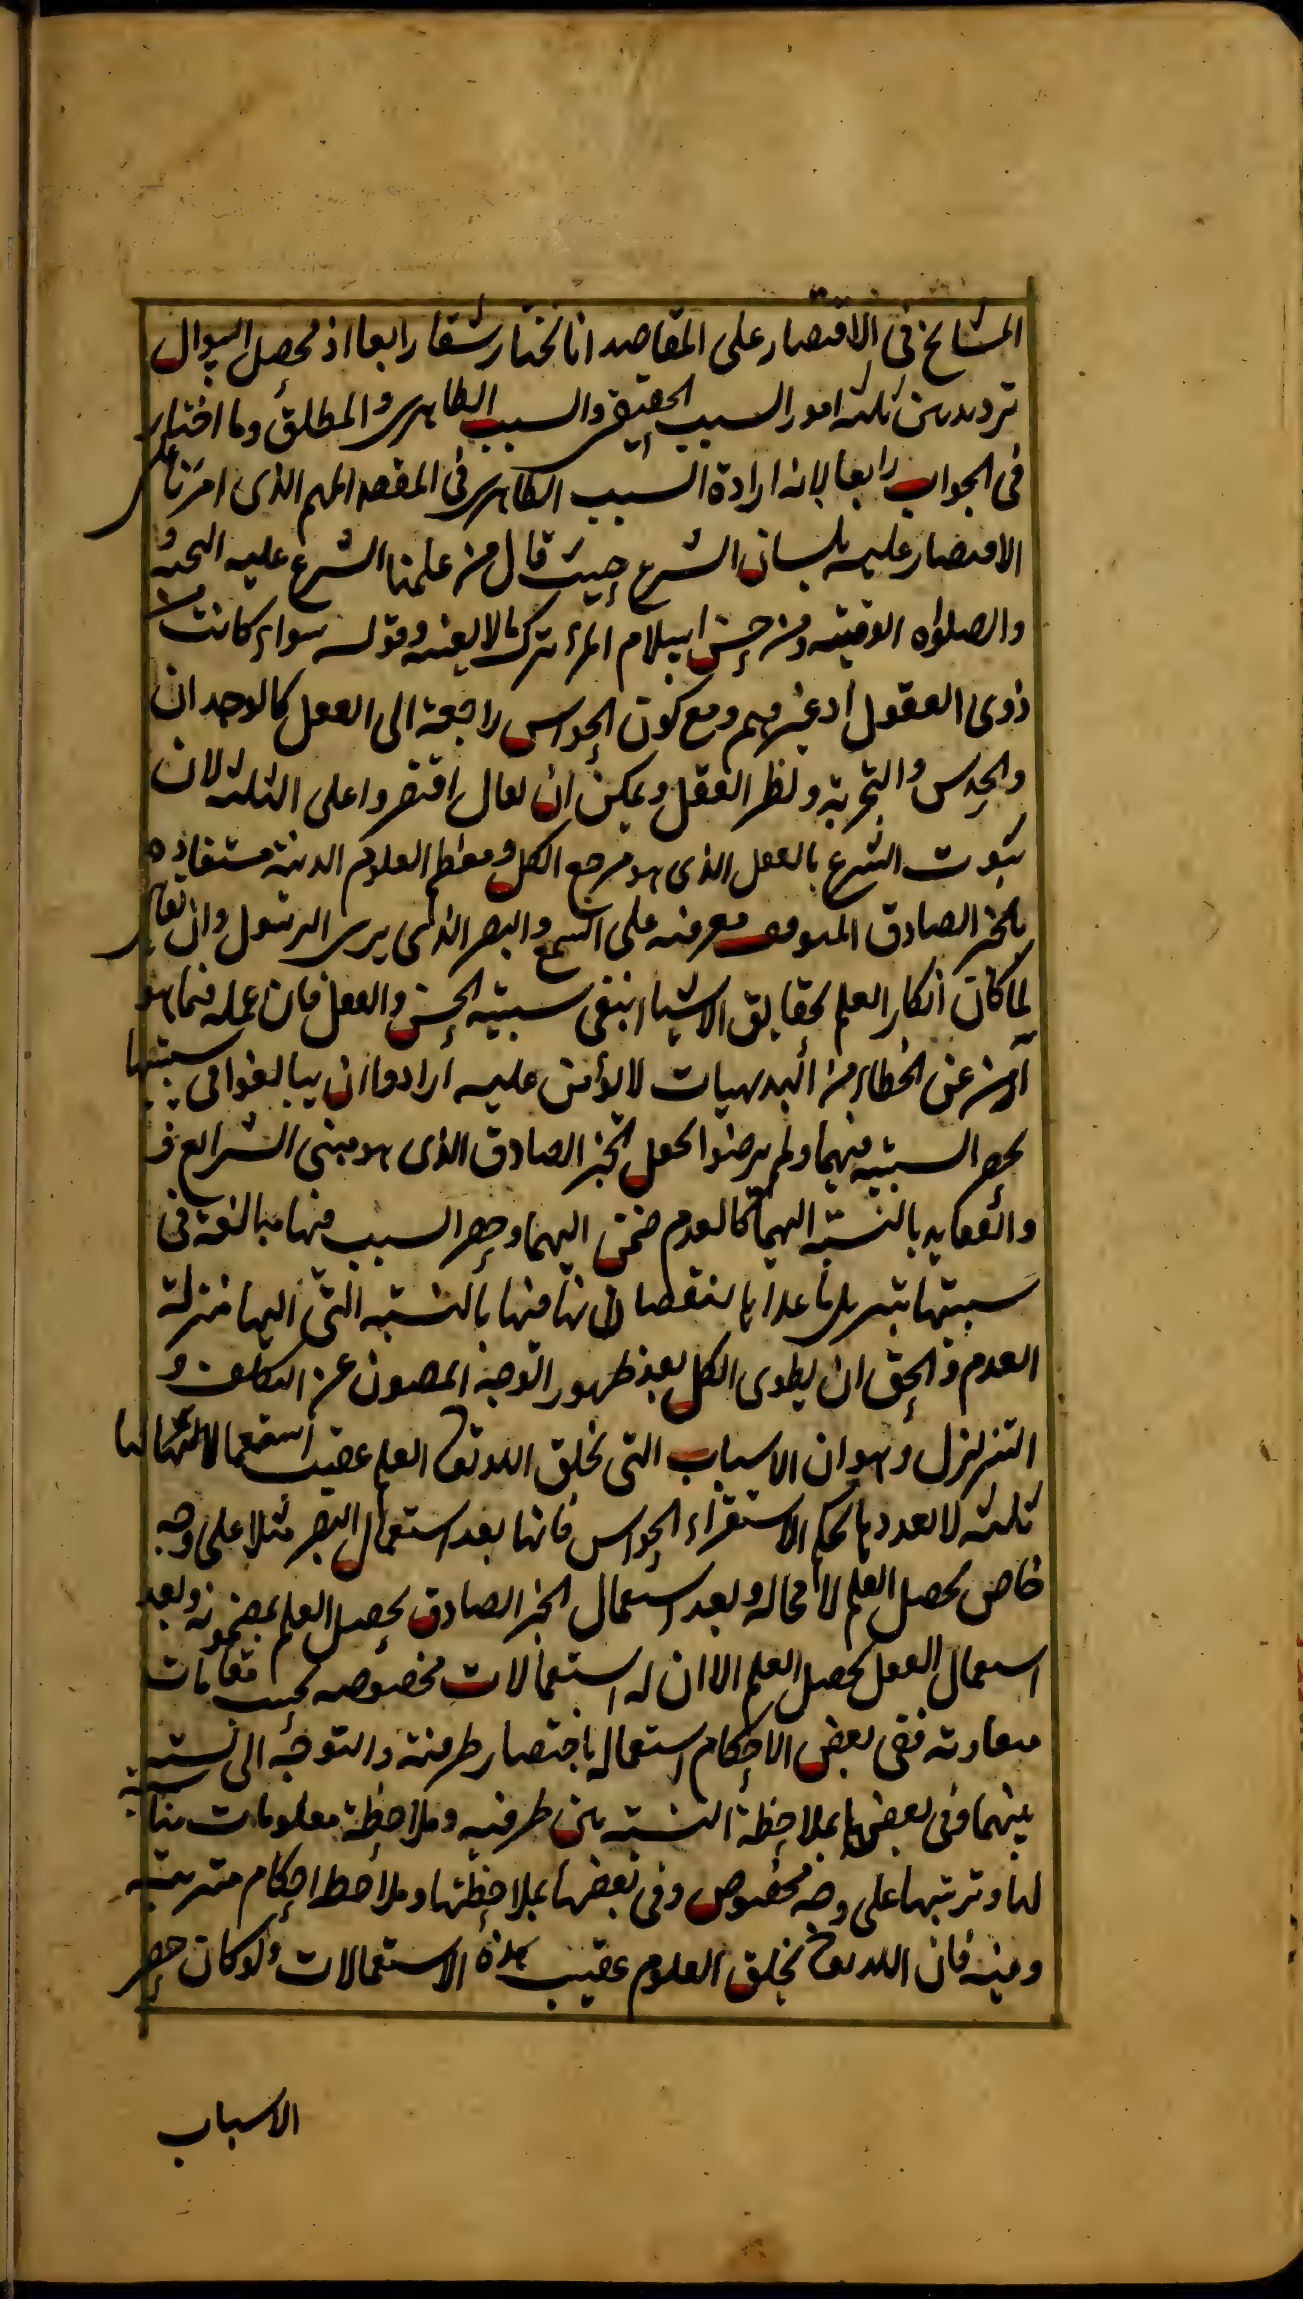 المشايخ في الاقتصار على المقاصد انا نختار شقا رابعا اذ محصل السوال
ترديد بين ثلثة امور السبب الحقيقي والسبب الظاهري والمطلق وما اختاره
في الجواب رابعا لانه ارادة السبب الظاهري في المقصد المهم الذي امرنا على
الاقتصار عليه بلسان الشرع حيث قال من علمنا الشرع عليه التحية و
والصلوة الوفية من حسن اسلام المرء ترك ما لا يعنيه وقوله سواء كانت من
ذوي العقول او غيرهم ومع كون الحواس راجعة الى العقل كالوجدان
والحدس والتجربة ونظر العقل ويمكن ان يقال اقتصروا على الثلثة لان
ثبوت الشرع بالعقل الذي هو مرجع الكل ومعظم العلوم الدينية مستفادة
بالخبر الصادق الموقوف معرفته على السمع والبصر الذي يرى الرسول وان يقال
لما كان انكار العلم بحقايق الاشياء ينفي سببية الحس والعقل فان عمله فيما هو
آمن عن الخطاء من البديهيات لا يؤمن عليه ارادوا ان يبالغوا في سببيتها
بحصر السببية فيهما ولم يرضوا بجعل الخبر الصادق الذي هو مبنى الشرايع
والعقايد بالنسبة اليهما كالعدم فضمن اليهما وحصر السبب فيها مبالغة في
سببيتها بتنزيل ما عداها بنقصان بالنسبة التي اليها منزلة
العدم والحق ان يطوى الكل بعد ظهور الوجه المصون عن التكلف و
التنزلزل وهو ان الاسباب التي يخلق الله تعالى العلم عقيب استعمالاتها
ثلثة لا بعدد ما بحكم الاستقراء الحواس فانها بعد استعمال البصر مثلا على وجه
خاص يحصل العلم لا محالة وبعد استعمال الخبر الصادق يحصل العلم بمضمونه وبعد
استعمال العقل يحصل العلم الا ان له استعمالات مخصوصة بحسب مقامات
متفاوتة ففي بعض الاحكام استعماله باحتضار طرفيه والتوجه الى نسبة
بينهما وفي بعضها بملاحظة النسبة بين طرفيه وملاحظة معلومات مناسبة
لها وترتيبها على وجه مخصوص وفي بعضها بملاحظتها وملاحظة احكام مترتبة
فان الله تعالى يخلق العلوم عقيب هذه الاستعمالات ولو كان حصر
الاسباب